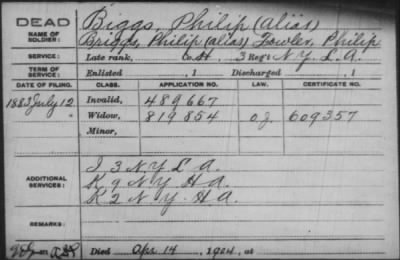 DEAD
NAME OF SOLDIER:
Biggs, Philip (alias)
Briggs, Philip (alias) Fowler, Philip
SERVICE: Late rank, Co. H, 3 Reg't N.Y. L.A.
TERM OF SERVICE: Enlisted , 1 Discharged , 1
DATE OF FILING. CLASS. APPLICATION NO. LAW. CERTIFICATE NO.
1883 July 12 Invalid, 489667
" Widow, 819854 o.g. 609357
Minor,
ADDITIONAL SERVICES:
I 3 N Y L A.
K 9 N Y H A.
K 2 N Y. H A.
REMARKS:
Died Apr. 14, 1904, at